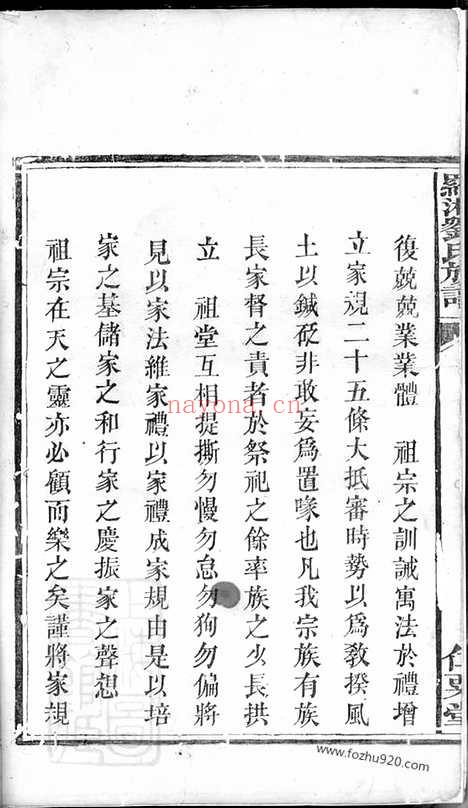 羅湘劉氏族譜
復兢兢業業體　祖宗之訓誡寓法於禮增
立家規二十五條大抵審時勢以爲敎揆風
土以鍼砭非敢妄爲置喙也凡我宗族有族
長家督之責者於祭祀之餘率族之少長拱
立　祖堂互相提撕勿慢勿怠勿狥勿偏將
見以家法維家禮以家禮成家規由是以培
家之基儲家之和行家之慶振家之聲想
祖宗在天之靈亦必顧而樂之矣謹將家規
nayona.cn
www.fozhu920.com